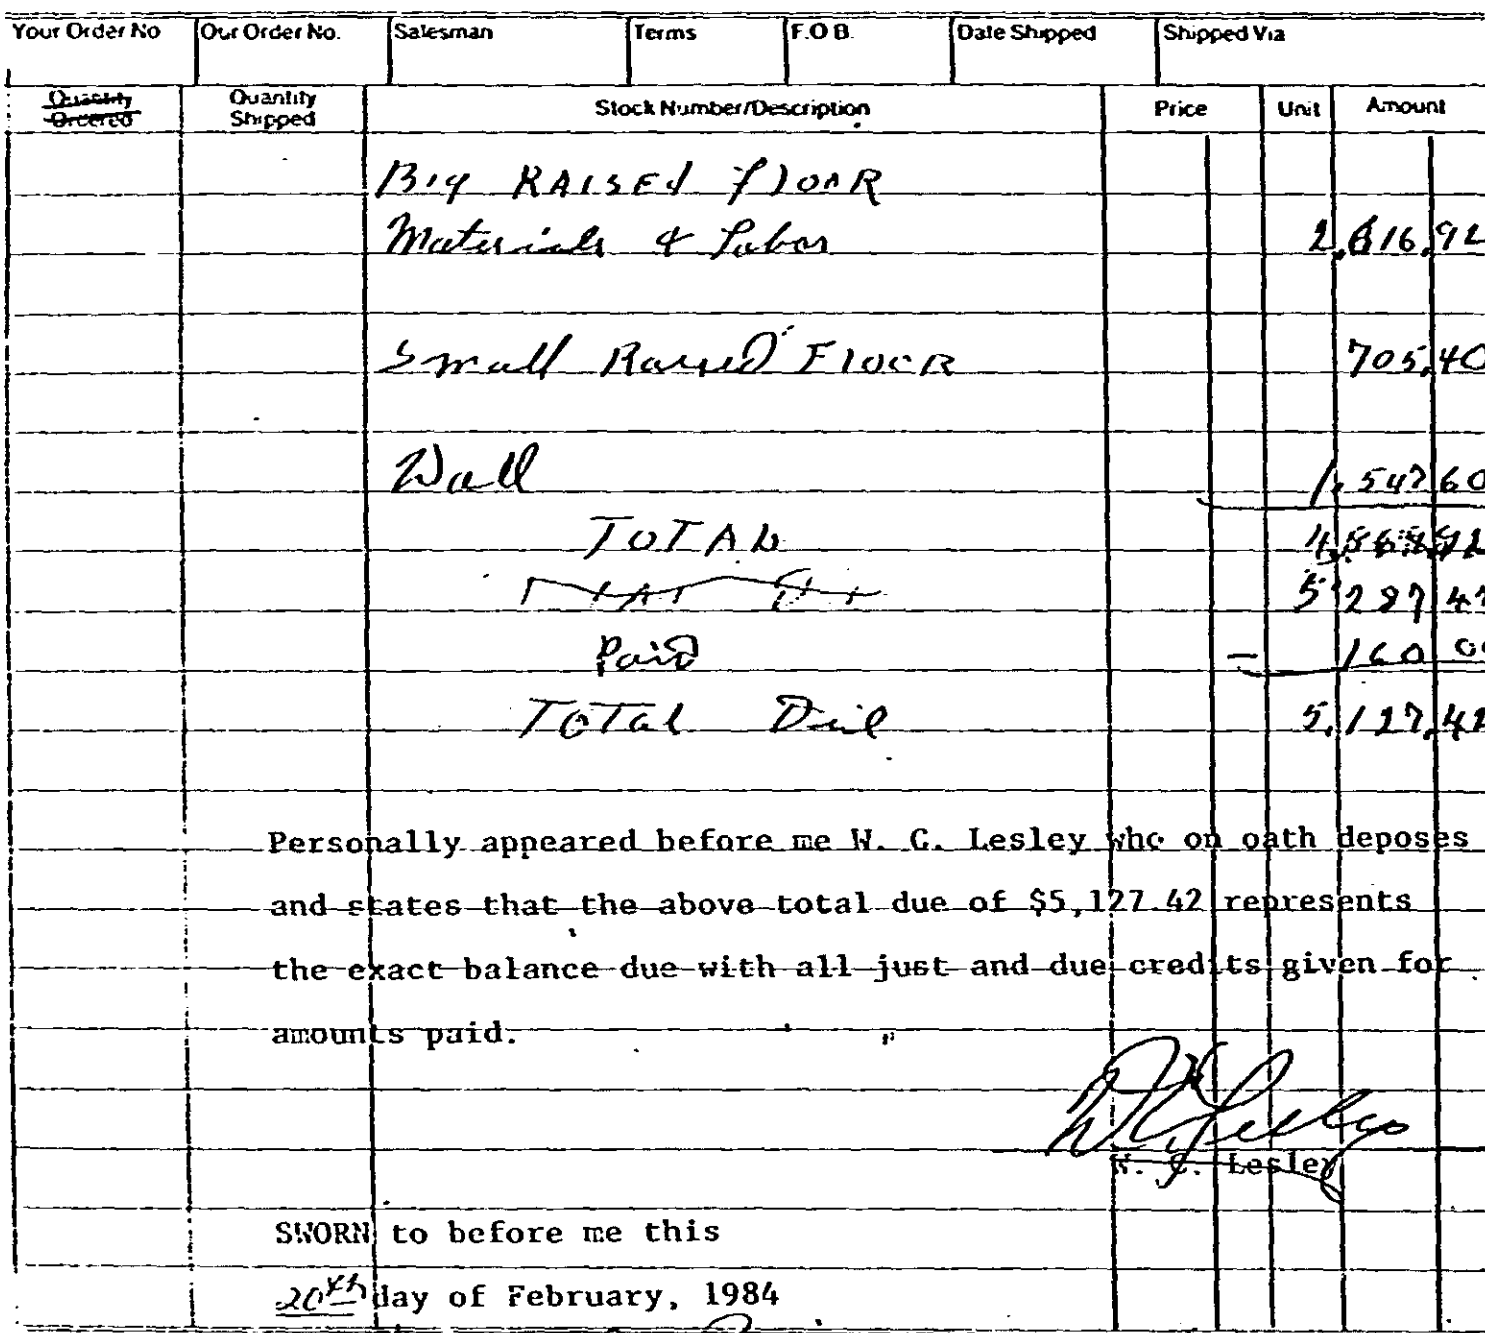 Your Order No Our Order No. Salesman Terms F.O.B. Date Shipped Shipped Via
Quantity Ordered Quantity Shipped Stock Number/Description Price Unit Amount
Big RAISEd FlooR
Materials & Labor 2,616.92
Small Raised FlooR 705.40
Wall 1,547.60
TOTAL
5,287.42
Paid - 160.00
TOTal Due 5,127.42
Personally appeared before me W. C. Lesley who on oath deposes
and states that the above total due of $5,127.42 represents
the exact balance due with all just and due credits given for
amounts paid.
W C Lesley
W. C. Lesley
SWORN to before me this
20th day of February, 1984